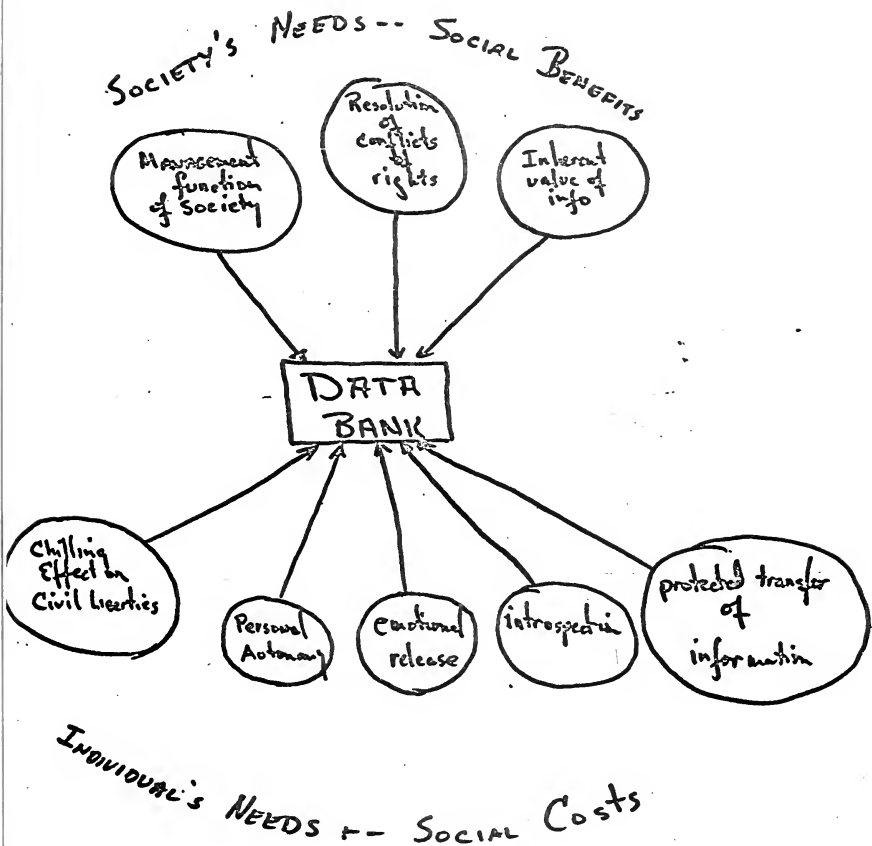 SOCIETY'S NEEDS -- SOCIAL BENEFITS
Management
function
of society
Resolution
of
conflicts
of
rights
Inherent
value of
info
DATA
BANK
Chilling
Effect on
Civil Liberties
Personal
Autonomy
emotional
release
introspection
protected transfer
of
information
INDIVIDUAL'S NEEDS -- SOCIAL COSTS